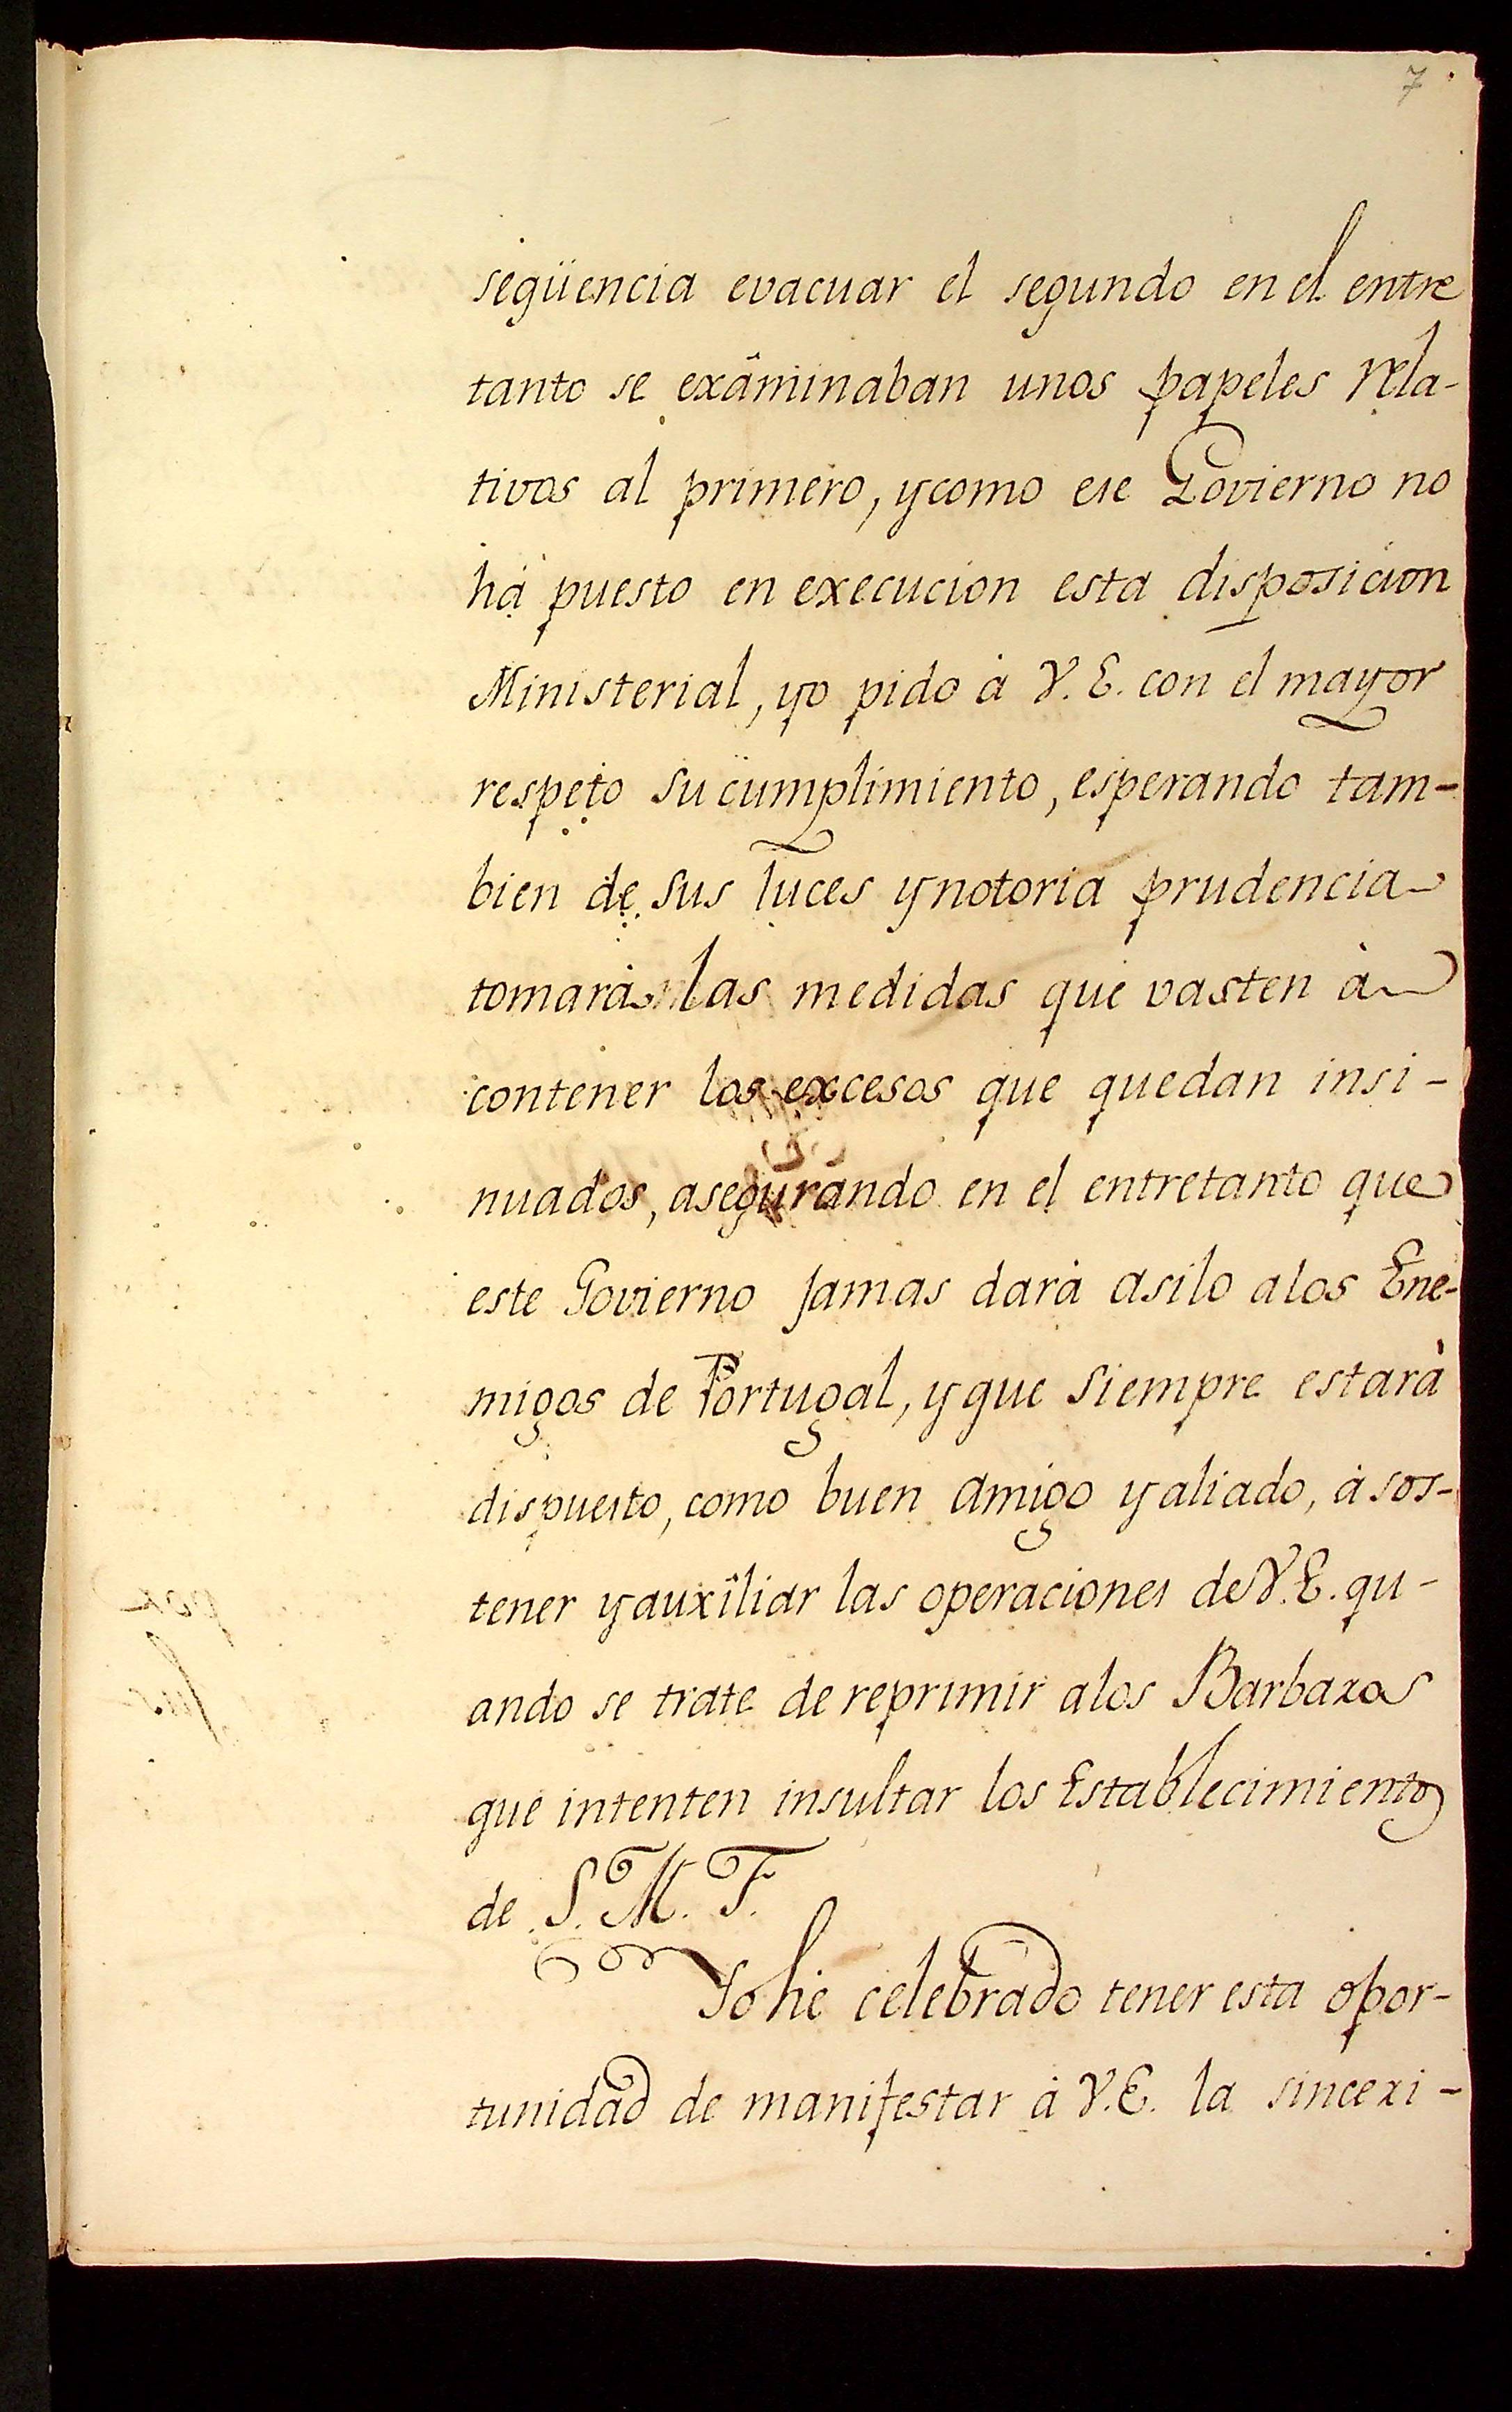 7
seqüencia evacuar el segundo en el entre
tanto se exâminaban unos papeles rela-
tivos al primero, y como ese Govierno no
há puesto en execucion esta disposicion
Ministerial, yo pido á V. E. con el mayor
respeto su cumplimiento, esperando tam-
bien de sus luces y notoria prudencia
tomará las medidas que vasten á
contener los excesos que quedan insi-
nuados, asegurando en el entretanto que
este Govierno jamas dará asilo a los Ene-
migos de Portugal, y que siempre estará
dispuesto, como buen amigo y aliado, á sos-
tener y auxîliar las operaciones de V. E. qu-
ando se trate de reprimir a los Barbaros
que intenten insultar los Establecimientos
de S. M. F.
Yo hé celebrado tener esta opor-
tunidad de manifestar á V. E. la sinceri-